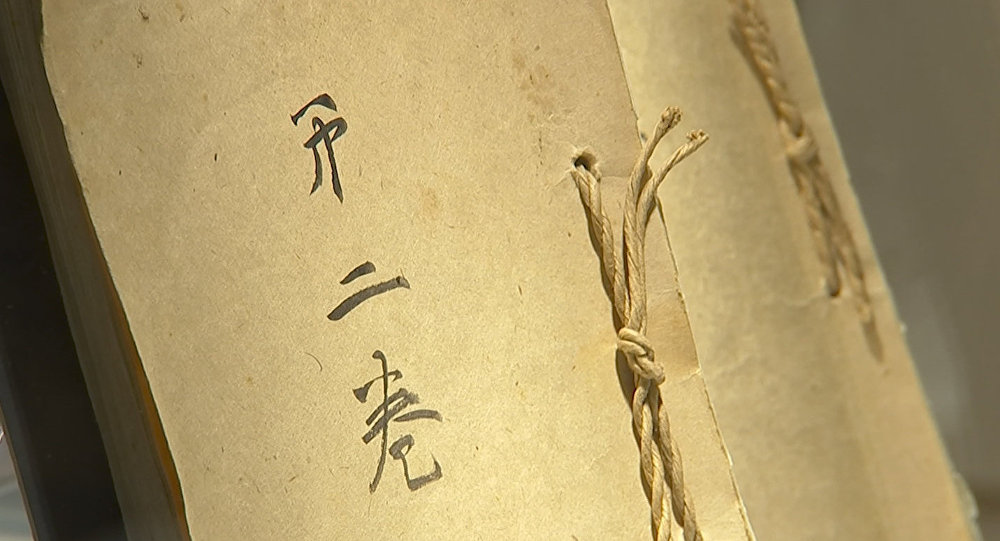 第二卷